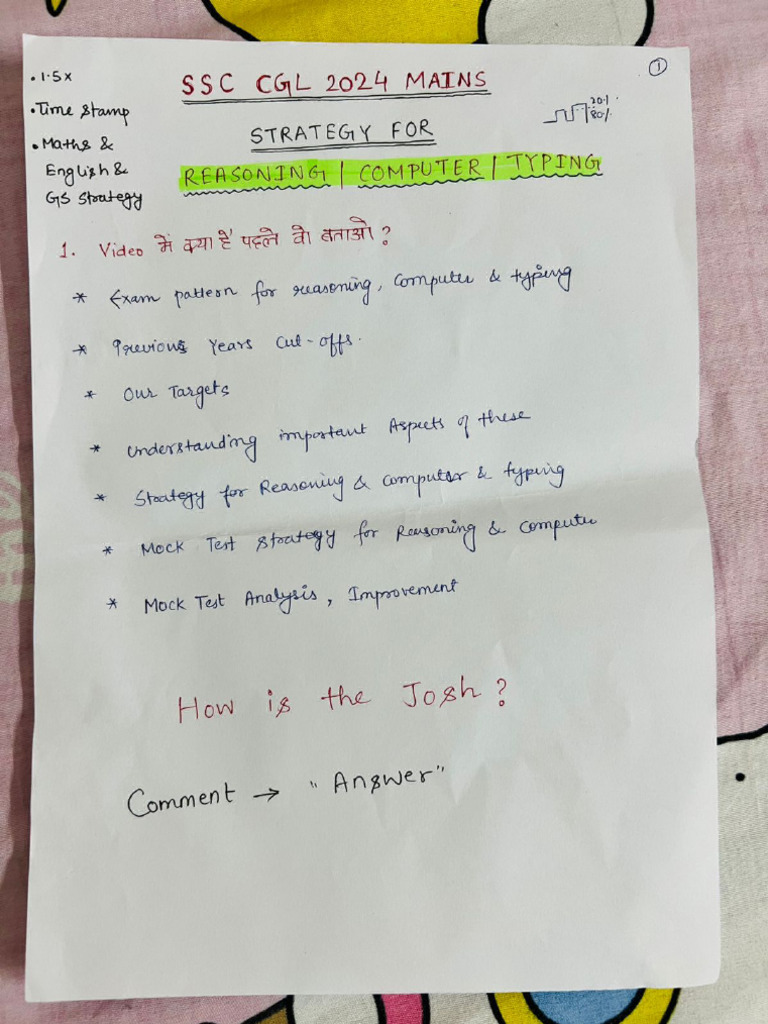 • 1.5x
• Time Stamp
• Maths &
English &
GS Strategy
SSC CGL 2024 MAINS
STRATEGY FOR
REASONING | COMPUTER | TYPING
1
20%
80%
1. Video में क्या है पहले वो बताओ ?
* Exam pattern for reasoning, Computer & typing
* Previous Years Cut-offs.
* Our Targets
* Understanding important Aspects of these
* Strategy for Reasoning & computer & typing
* Mock Test Strategy for Reasoning & Computer
* Mock Test Analysis, Improvement
How is the Josh ?
Comment → "Answer"